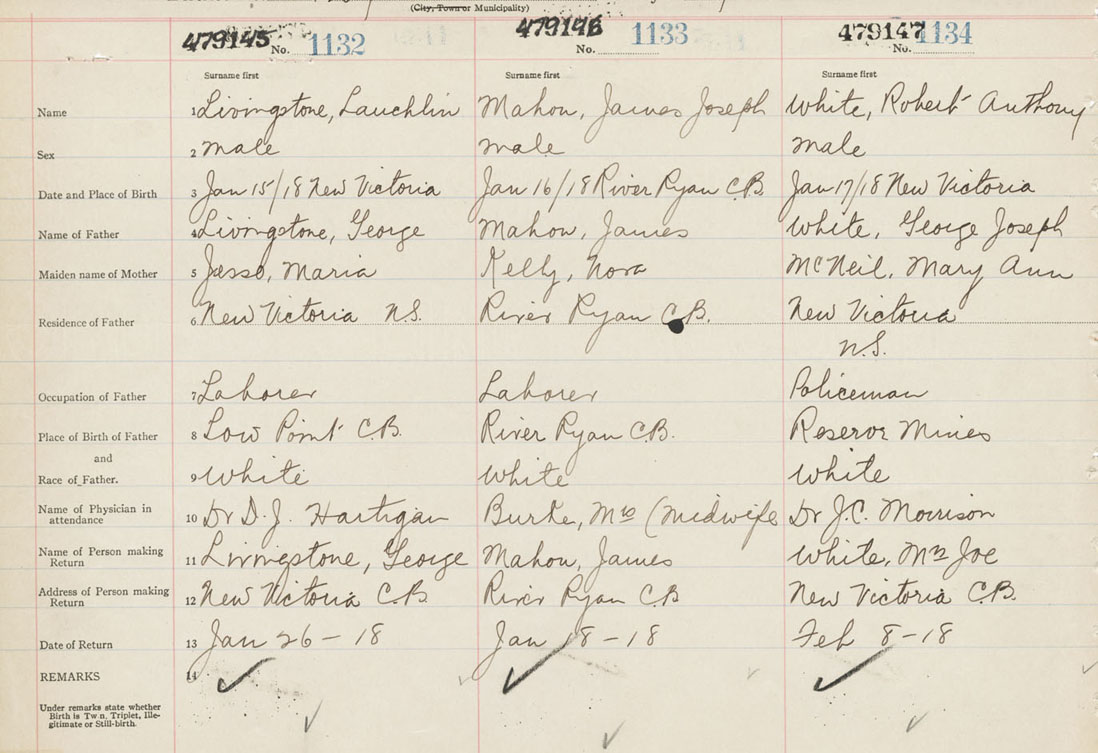 (City, Town or Municipality)
479145 No. 1132 479146 No. 1133 479147 No. 1134
Surname first Surname first Surname first
Name 1 Livingstone, Lauchlin Mahon, James Joseph White, Robert Anthony
Sex 2 Male Male Male
Date and Place of Birth 3 Jan 15/18 New Victoria Jan 16/18 River Ryan C.B. Jan 17/18 New Victoria
Name of Father 4 Livingstone, George Mahon, James White, George Joseph
Maiden name of Mother 5 Jesso, Maria Kelly, Nora McNeil, Mary Ann
Residence of Father 6 New Victoria N.S. River Ryan C.B. New Victoria
N.S.
Occupation of Father 7 Laborer Laborer Policeman
Place of Birth of Father 8 Low Point C.B. River Ryan C.B. Reserve Mines
and
Race of Father. 9 White White White
Name of Physician in
attendance 10 Dr D.J. Hartigan Burke, Mrs (Midwife Dr J.C. Morrison
Name of Person making
Return 11 Livingstone, George Mahon, James White, Mrs Joe
Address of Person making
Return 12 New Victoria C.B. River Ryan C.B New Victoria C.B.
Date of Return 13 Jan 26-18 Jan 18-18 Feb 8-18
REMARKS 14
Under remarks state whether
Birth is Twin, Triplet, Ille-
gitimate or Still-birth.